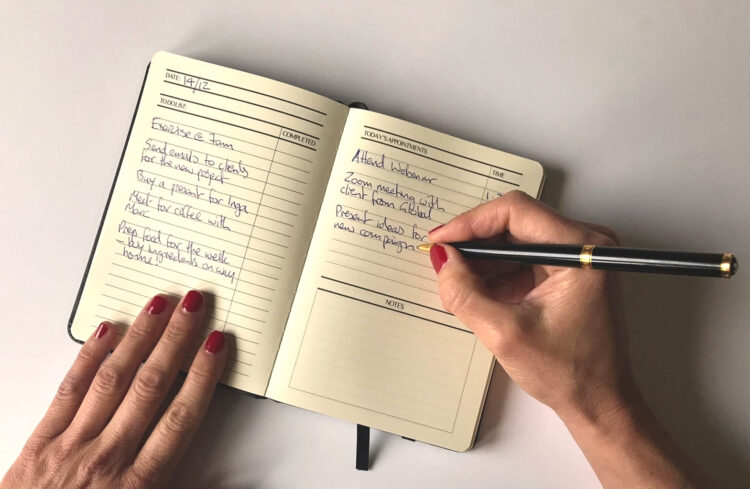 DATE: 14/12
TO DO LIST:
COMPLETED
Exercise @ 7am
Send emails to clients
for the new project
Buy a present for Inga
Meet for coffee with
Marc
Prep food for the week
- buy ingredients on way
home!
TODAY'S APPOINTMENTS
TIME
Attend Webinar
Zoom meeting with
client from Global
Present ideas for
new campaign
NOTES